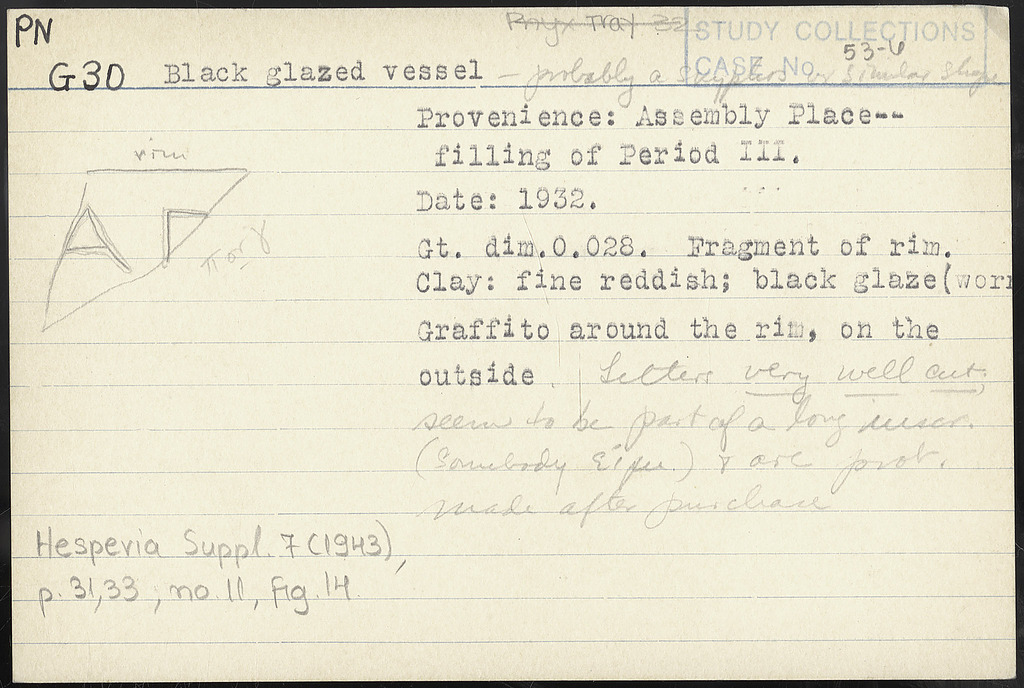 PN
Pnyx Tray 32
STUDY COLLECTIONS
53-6
CASE No.
G30 Black glazed vessel – probably a skyphos or similar shape
Provenience: Assembly Place--
filling of Period III.
Date: 1932.
Gt. dim.0.028. Fragment of rim.
Clay: fine reddish; black glaze(worn
Graffito around the rim, on the
outside. Letters very well cut,
seem to be part of a long inscr.
(Somebody εἰμι) & are prob.
made after purchase
rim
Α Γ
π or γ
Hesperia Suppl. 7 (1943),
p. 31,33, no. 11, fig. 14.